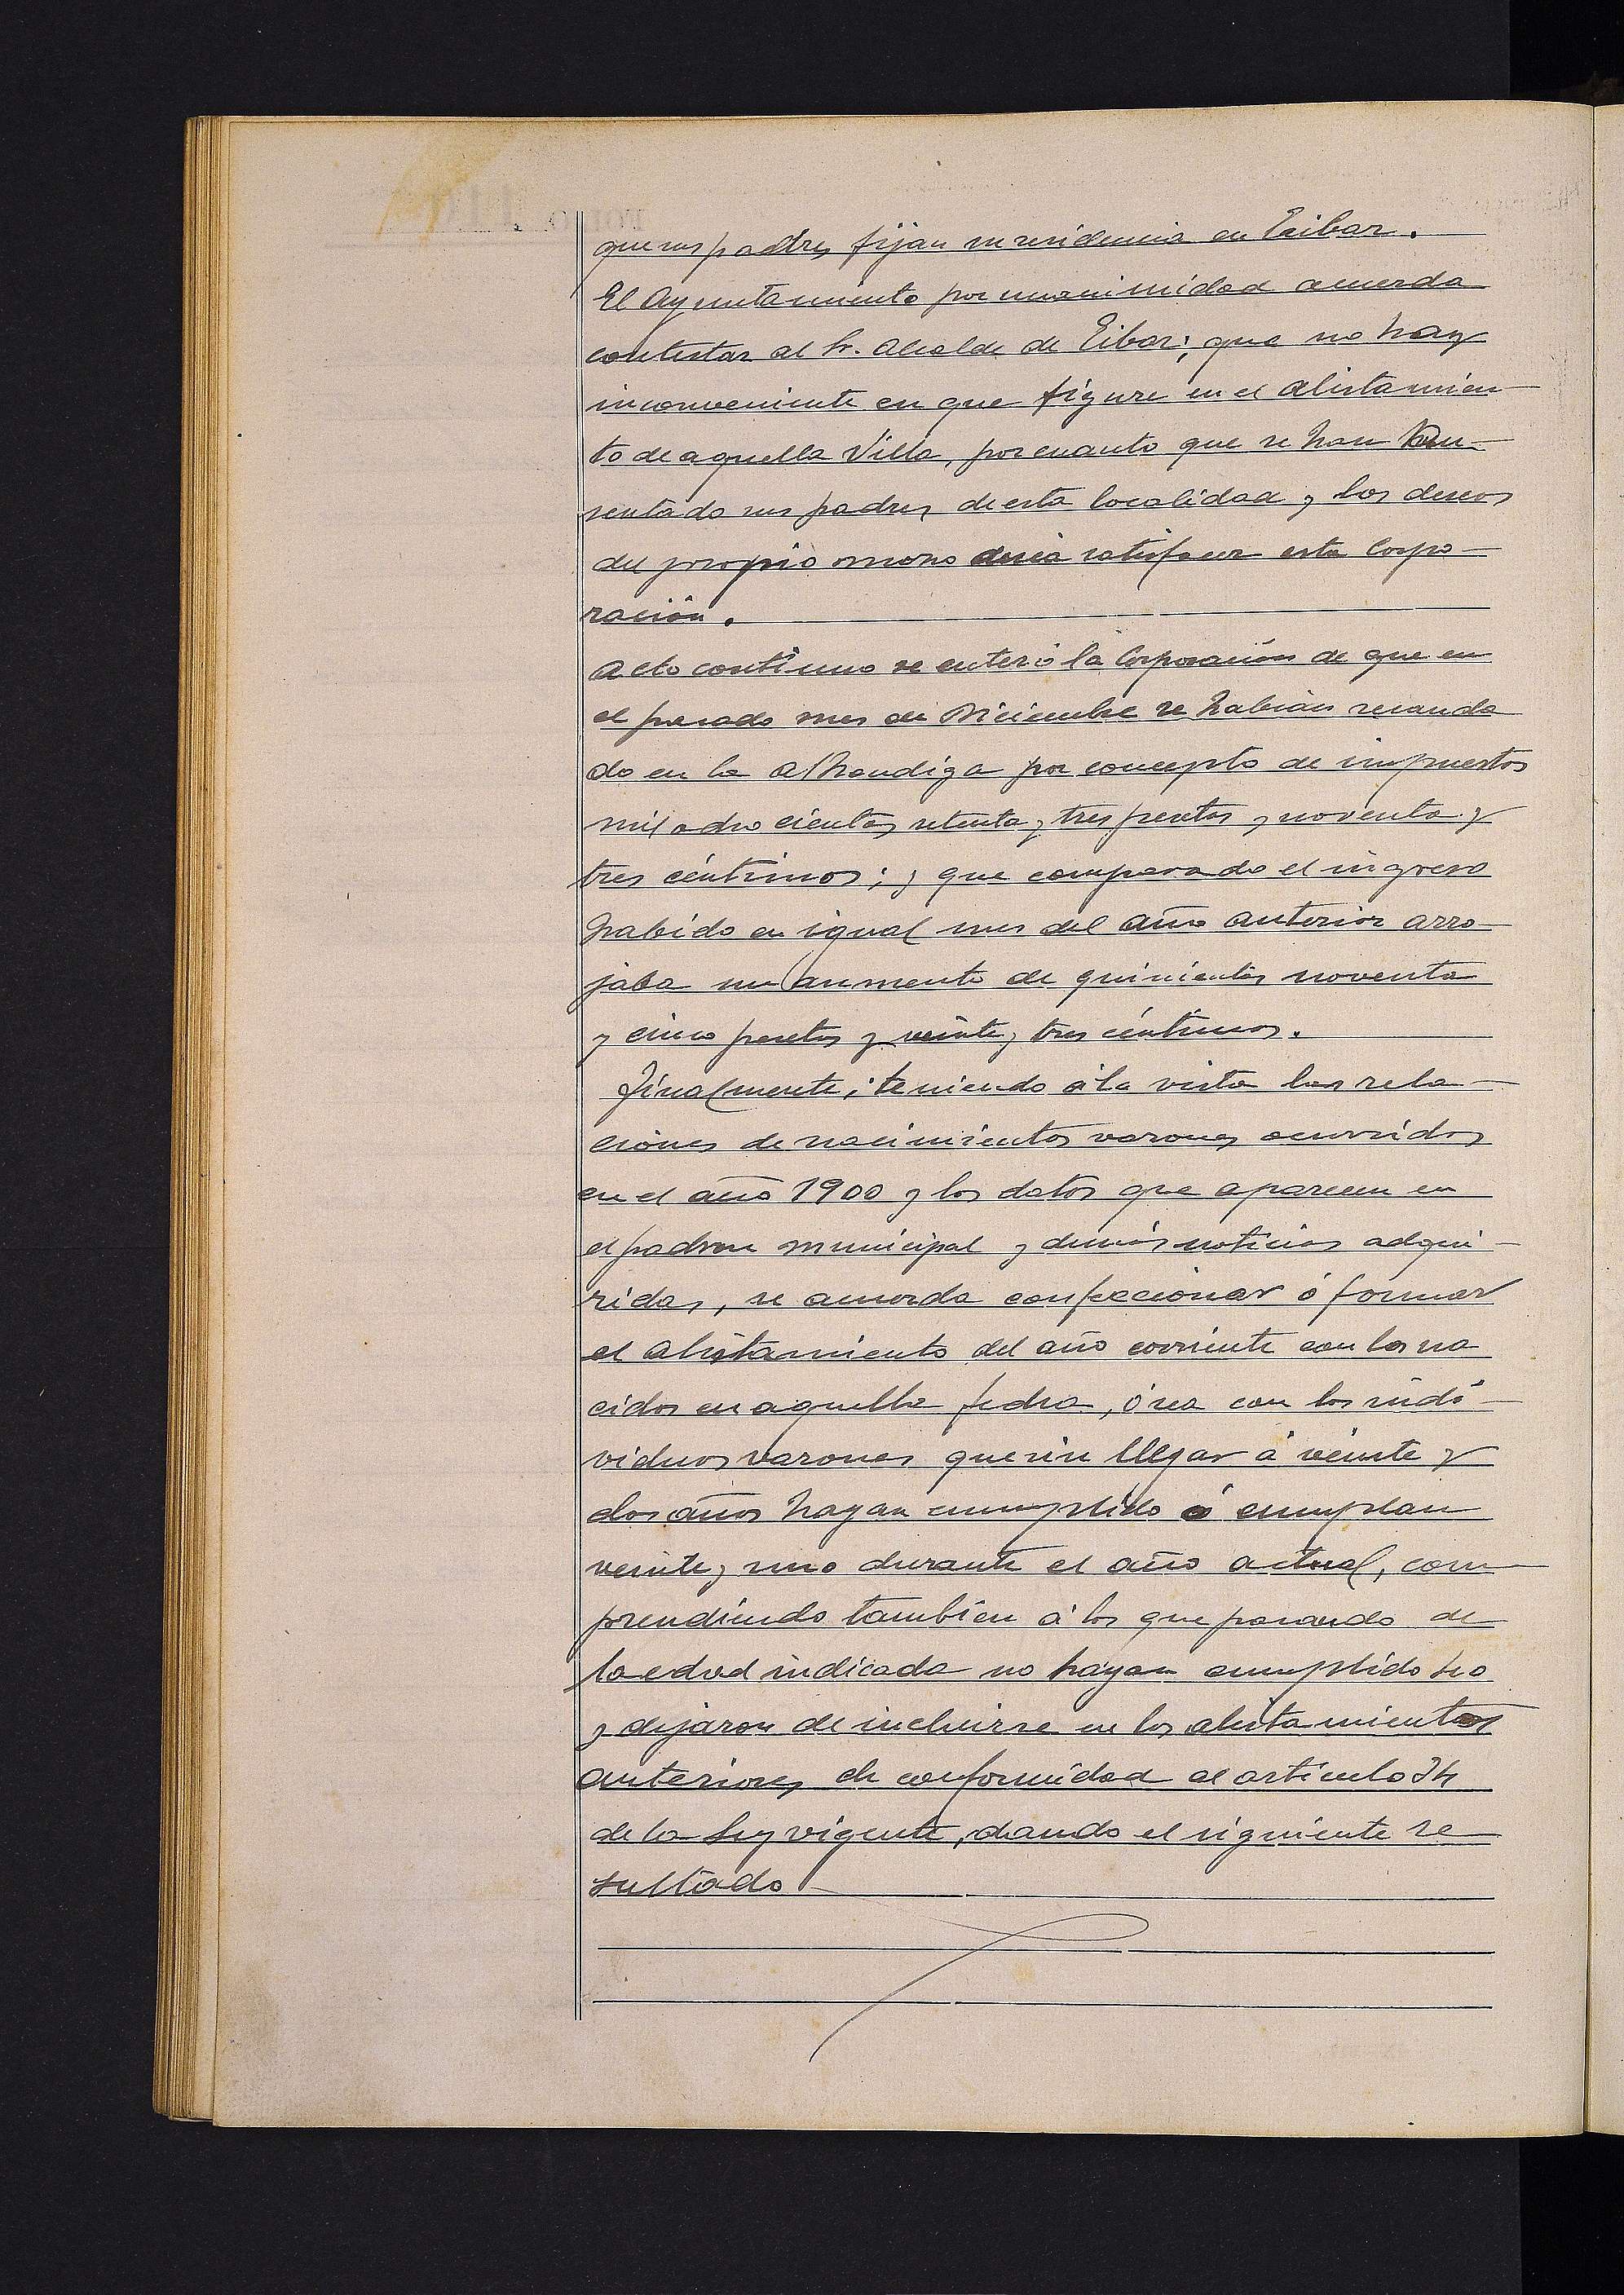 que sus padres fijan su residencia en Eibar.
El Ayuntamiento por unanimidad acuerda
contestar al Sr. Alcalde de Eibar; que no hay
inconveniente en que figure en el alistamien-
to de aquella Villa, por cuanto que se han au-
sentado sus padres de esta localidad y los deseos
del propio mozo desea satisfacer esta Corpo-
ración.
Acto contínuo se enteró la Corporación de que en
el pasado mes de Diciembre se habían recauda
do en la Alhondiga por concepto de impuestos
mil ocho cientas setenta y tres pesetas y noventa y
tres céntimos; y que comparado el ingreso
habido en igual mes del año anterior arro-
jaba un aumento de quinientas noventa
y cinco pesetas y veinte y tres céntimos.
Finalmente; teniendo á la vista las rela-
ciones de nacimientos varones ocurridos
en el año 1900 y los datos que aparecen en
el padron municipal y demás noticias adqui-
ridas, se acuerda confeccionar ó formar
el alistamiento del año corriente con los na
cidos en aquella fecha, ó sea con los indi-
viduos varones que sin llegar á veinte y
dos años hayan cumplido ó cumplan
veinte y uno durante el año actual, com-
prendiendo tambien á los que pasando de
la edad indicada no hayan cumplido
y dejaron de incluirse en los alistamientos
anteriores de conformidad al artículo 34
de la Ley vigente, dando el siguiente re
sultado